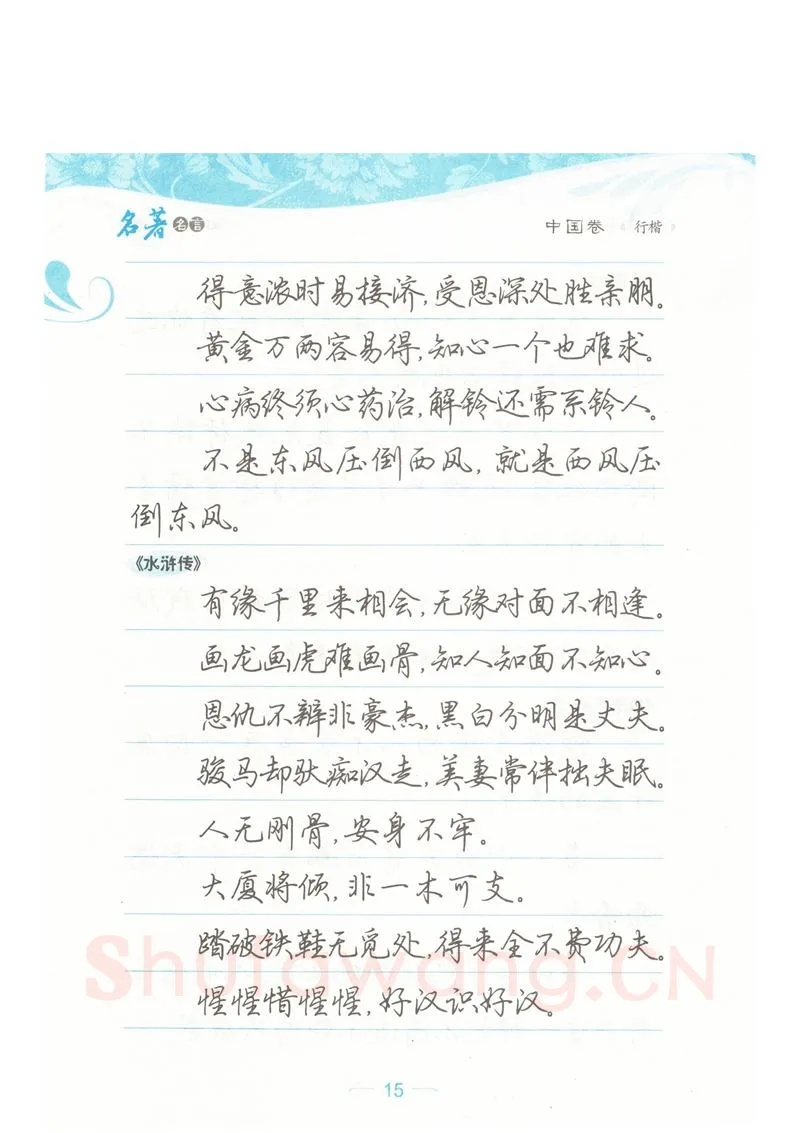 名著名言
中国卷 行楷
得意浓时易接济,受恩深处胜亲朋。
黄金万两容易得,知心一个也难求。
心病终须心药治,解铃还需系铃人。
不是东风压倒西风,就是西风压
倒东风。
《水浒传》
有缘千里来相会,无缘对面不相逢。
画龙画虎难画骨,知人知面不知心。
恩仇不辨非豪杰,黑白分明是丈夫。
骏马却驮痴汉走,美妻常伴拙夫眠。
人无刚骨,安身不牢。
大厦将倾,非一木可支。
踏破铁鞋无觅处,得来全不费功夫。
惺惺惜惺惺,好汉识好汉。
Shufawang.CN
15